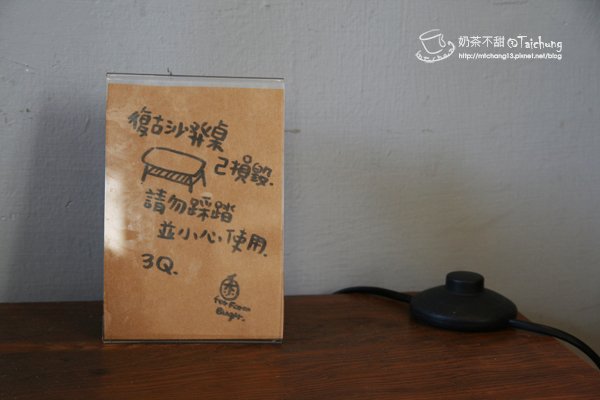 奶茶不甜@Taichung
http://mtchang13.pixnet.net/blog
復古沙發桌
已損毀.
請勿踩踏
並小心使用.
3Q.